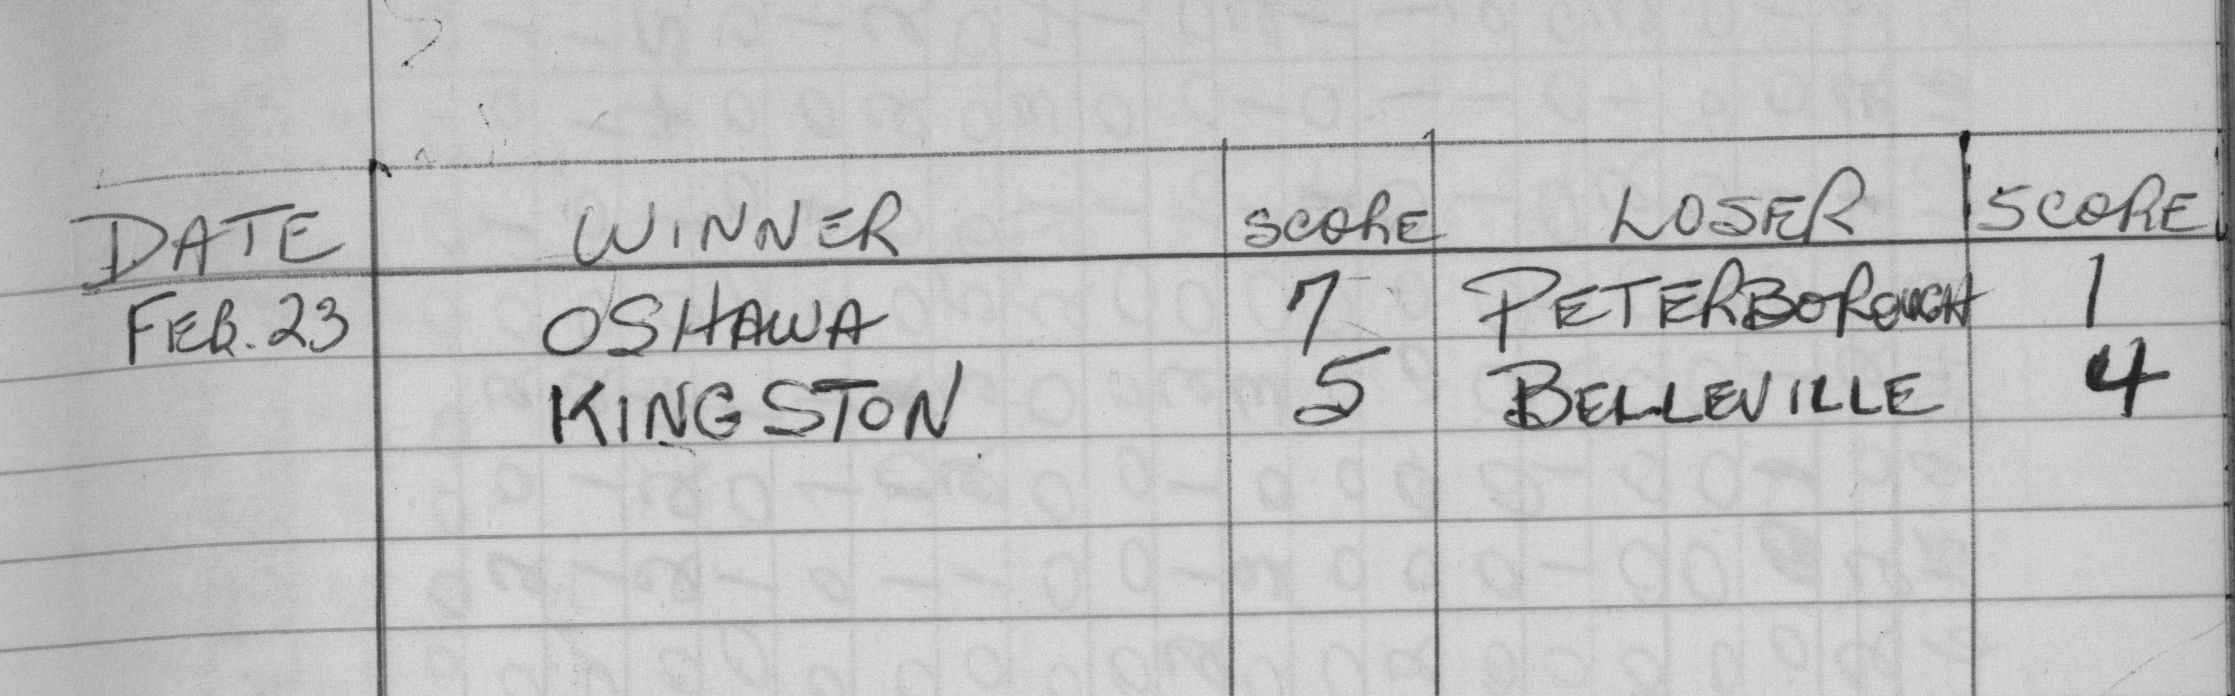 DATE WINNER SCORE LOSER SCORE
FEB. 23 OSHAWA 7 PETERBOROUGH 1
KINGSTON 5 BELLEVILLE 4